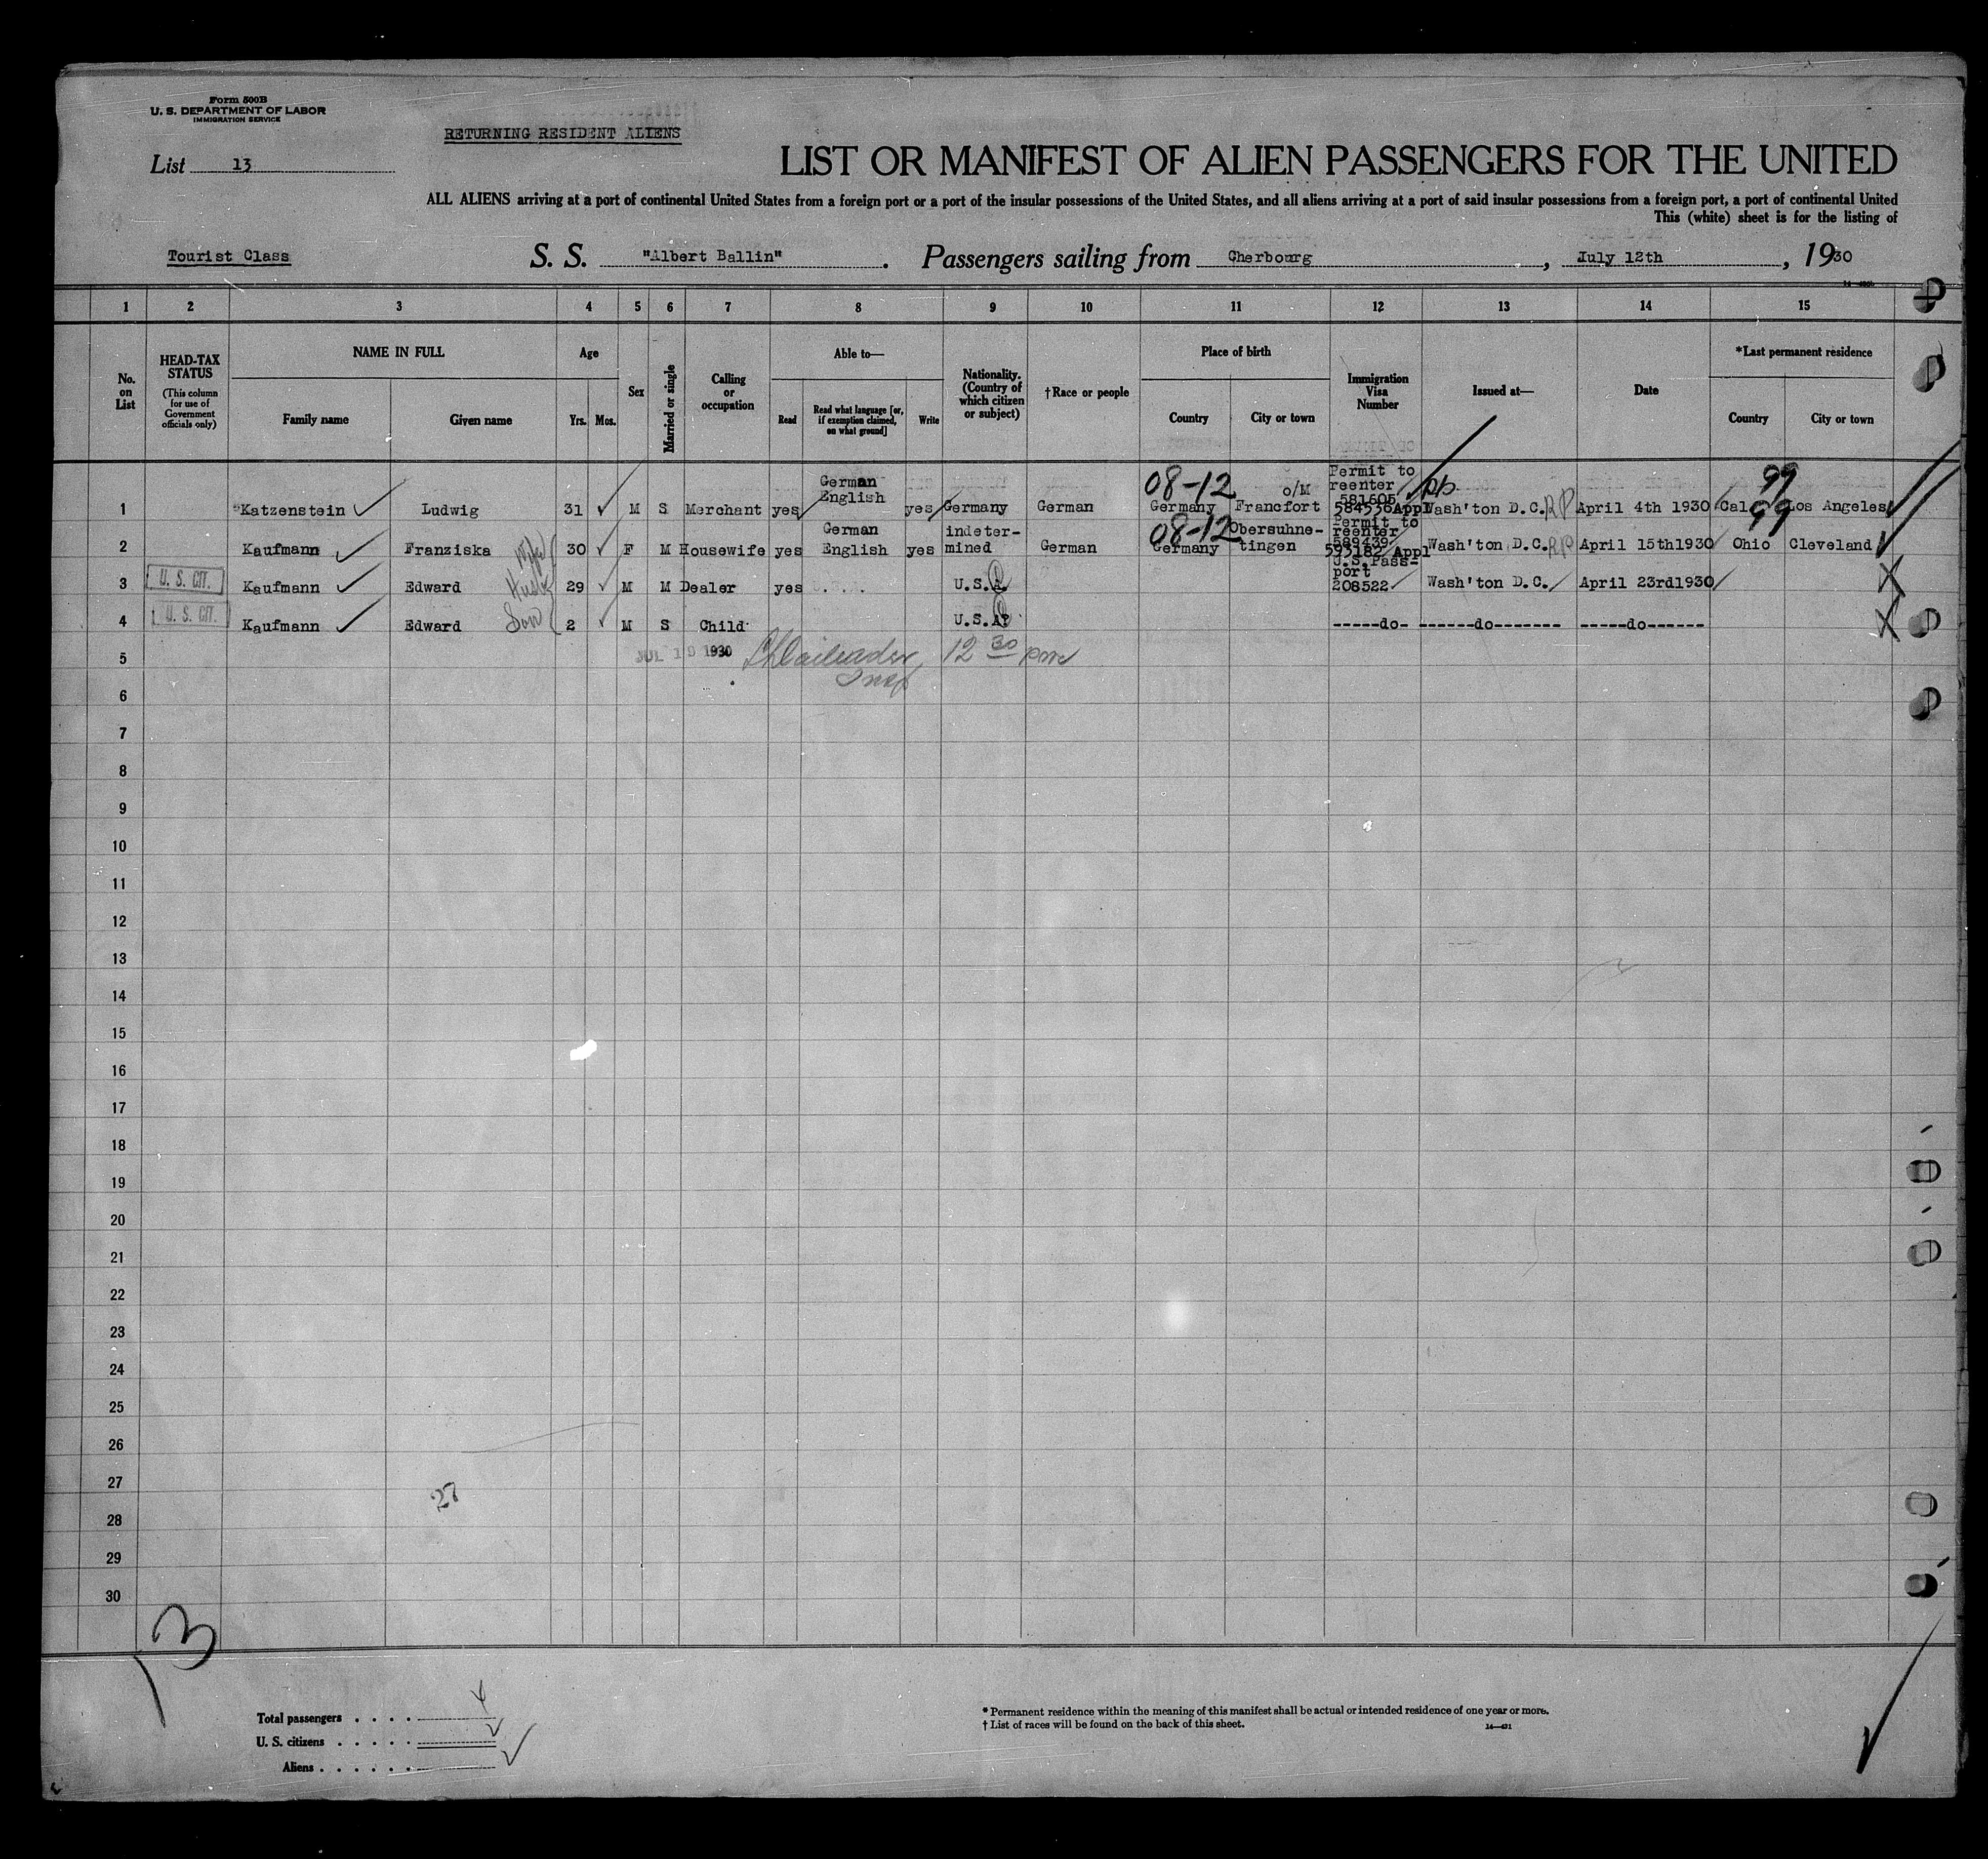 Form 500B
U. S. DEPARTMENT OF LABOR
IMMIGRATION SERVICE
RETURNING RESIDENT ALIENS
List 13
LIST OR MANIFEST OF ALIEN PASSENGERS FOR THE UNITED
ALL ALIENS arriving at a port of continental United States from a foreign port or a port of the insular possessions of the United States, and all aliens arriving at a port of said insular possessions from a foreign port, a port of continental United
This (white) sheet is for the listing of
Tourist Class S. S. "Albert Ballin". Passengers sailing from Cherbourg, July 12th, 1930
1 2 3 4 5 6 7 8 9 10 11 12 13 14 15
No. on List
HEAD-TAX STATUS (This column for use of Government officials only)
NAME IN FULL
Family name Given name
Age
Yrs. Mos.
Sex
Married or single
Calling or occupation
Able to—
Read Read what language [or, if exemption claimed, on what ground] Write
Nationality. (Country of which citizen or subject)
†Race or people
Place of birth
Country City or town
Immigration Visa Number
Issued at—
Date
*Last permanent residence
Country City or town
1 Katzenstein Ludwig 31 M S Merchant yes German English yes Germany German 08-12 Germany Francfort o/M Permit to reenter 581605 584536 Appl Wash'ton D.C. RP April 4th 1930 99 Cal Los Angeles
2 Kaufmann Franziska Wife 30 F M Housewife yes German English yes indeter-mined German 08-12 Germany Obersuhne-tingen Permit to reenter 589439 593182 Appl Wash'ton D.C. RP April 15th1930 99 Ohio Cleveland
3 U. S. CIT. Kaufmann Edward Husb 29 M M Dealer yes U.S.A. U.S.Pass-port 208522 Wash'ton D.C. April 23rd1930
4 U. S. CIT. Kaufmann Edward Son 2 M S Child U.S.A. -----do- ------do------- -----do------
5 JUL 19 1930 12 30 pm
Insp
6
7
8
9
10
11
12
13
14
15
16
17
18
19
20
21
22
23
24
25
26
27
27
28
29
30
13
Total passengers . . . . 4
U. S. citizens . . . . .
Aliens . . . . . .
* Permanent residence within the meaning of this manifest shall be actual or intended residence of one year or more.
† List of races will be found on the back of this sheet.
14—431